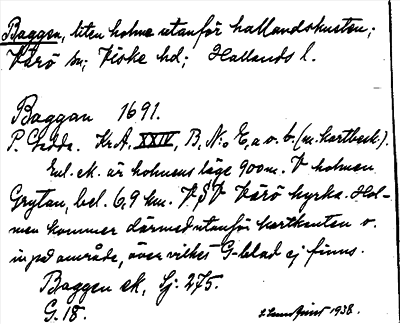 Baggen, liten holme utanför hallandskusten;
Värö sn; Viske hd; Hallands l.
Baggan 1691.
P. Gedda. Kr.A. XXIV, B, N:o E, a o. b. (m. kartbeck.).
Enl. ek. är holmens läge 900 m. V holmen
Grytan, bel. 6,9 km. V.S.V Värö kyrka. Hol-
men kommer därmed utanför kartkanten o.
in på område, över vilket G-blad ej finns.
Baggen ek, Sj: 275.
G. 18.
1938.